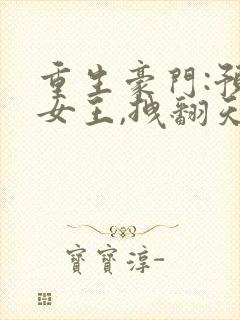 重生豪門:預
女王,拽翻天
寶寶淳-